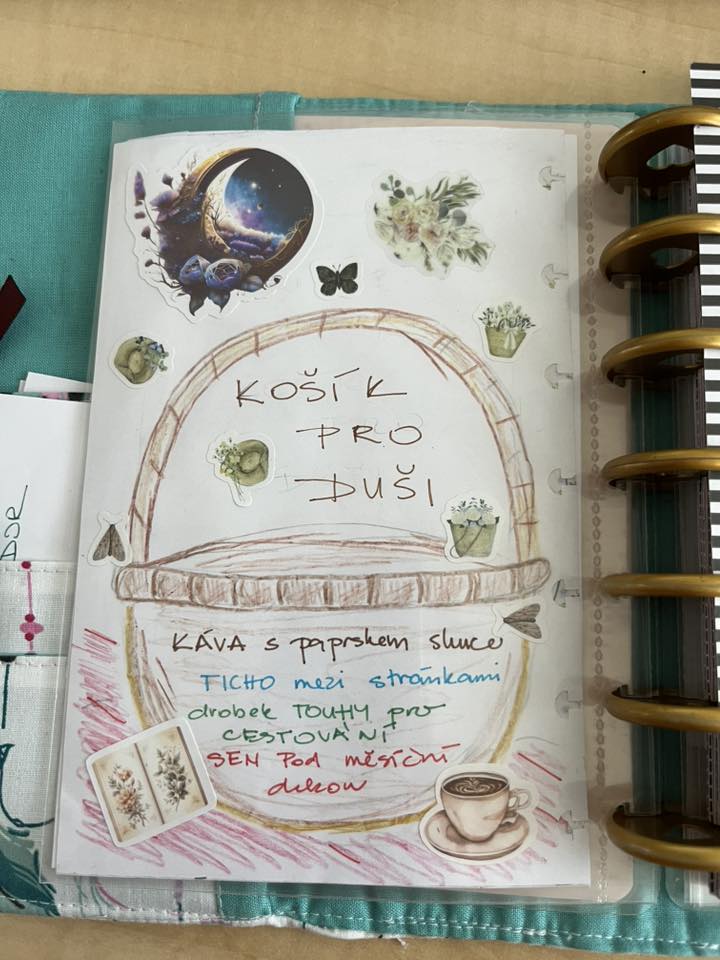 KOŠÍK
PRO
DUŠI
KÁVA s paprskem slunce
TICHO mezi stránkami
drobek TOUHY pro
CESTOVÁNÍ
SEN Pod měsíční
dekou